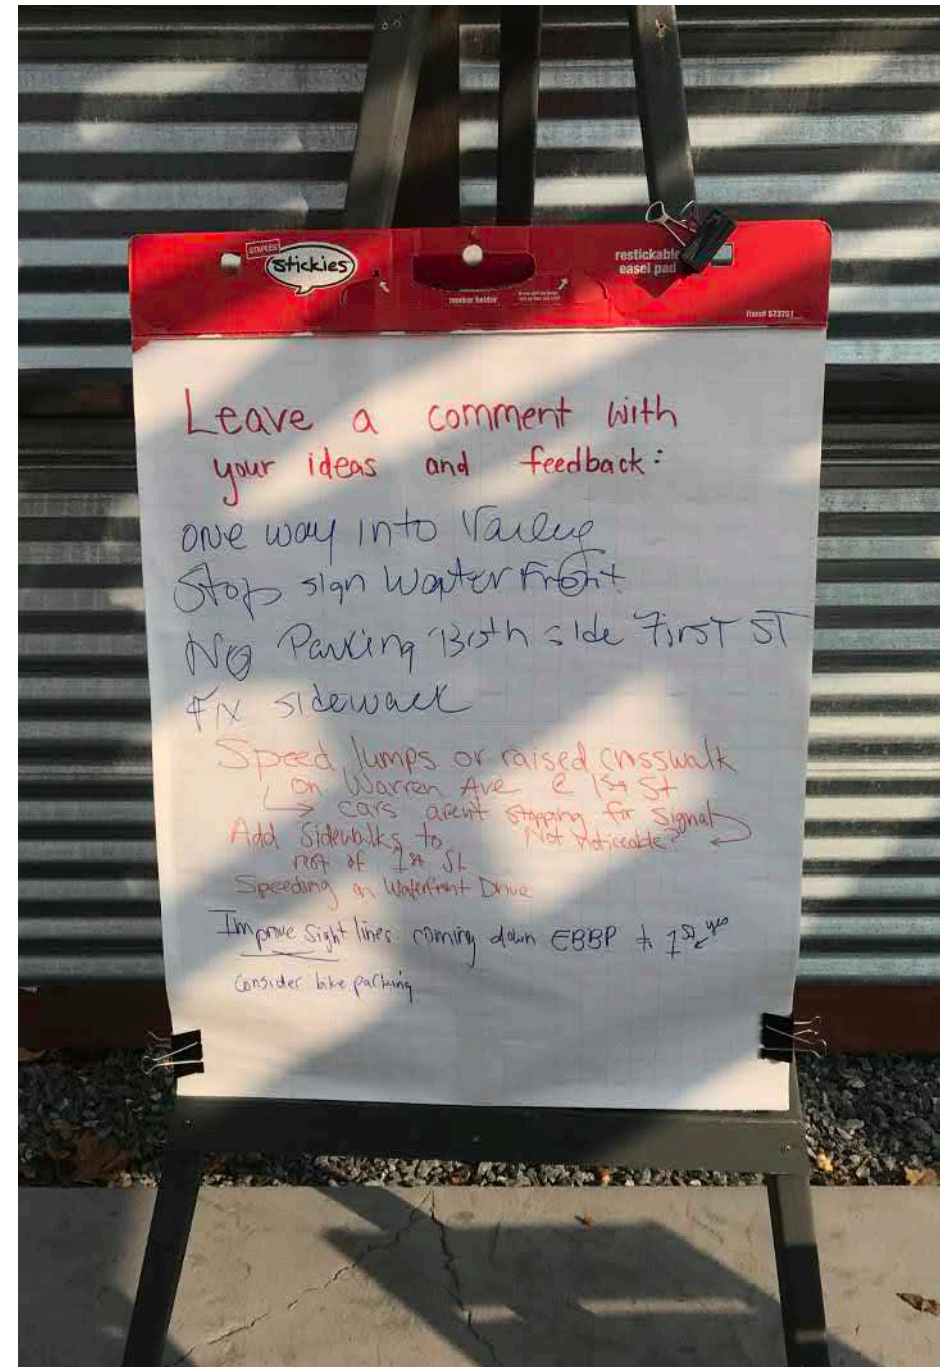 STAPLES
stickies
marker holder
restickable
easel pad
Item# 573751
Leave a comment with
your ideas and feedback:
one way into Valley
Stop sign Water Front
No Parking Both side First ST
Fix sidewalk
Speed lumps or raised crosswalk
on Warren Ave @ 1st St
→ cars aren't stopping for signal
Not noticeable?
Add Sidewalks to
rest of 1st St
Speeding on Waterfront Drive
Improve Sight lines coming down EBBP to 1st ← yes
Consider bike parking